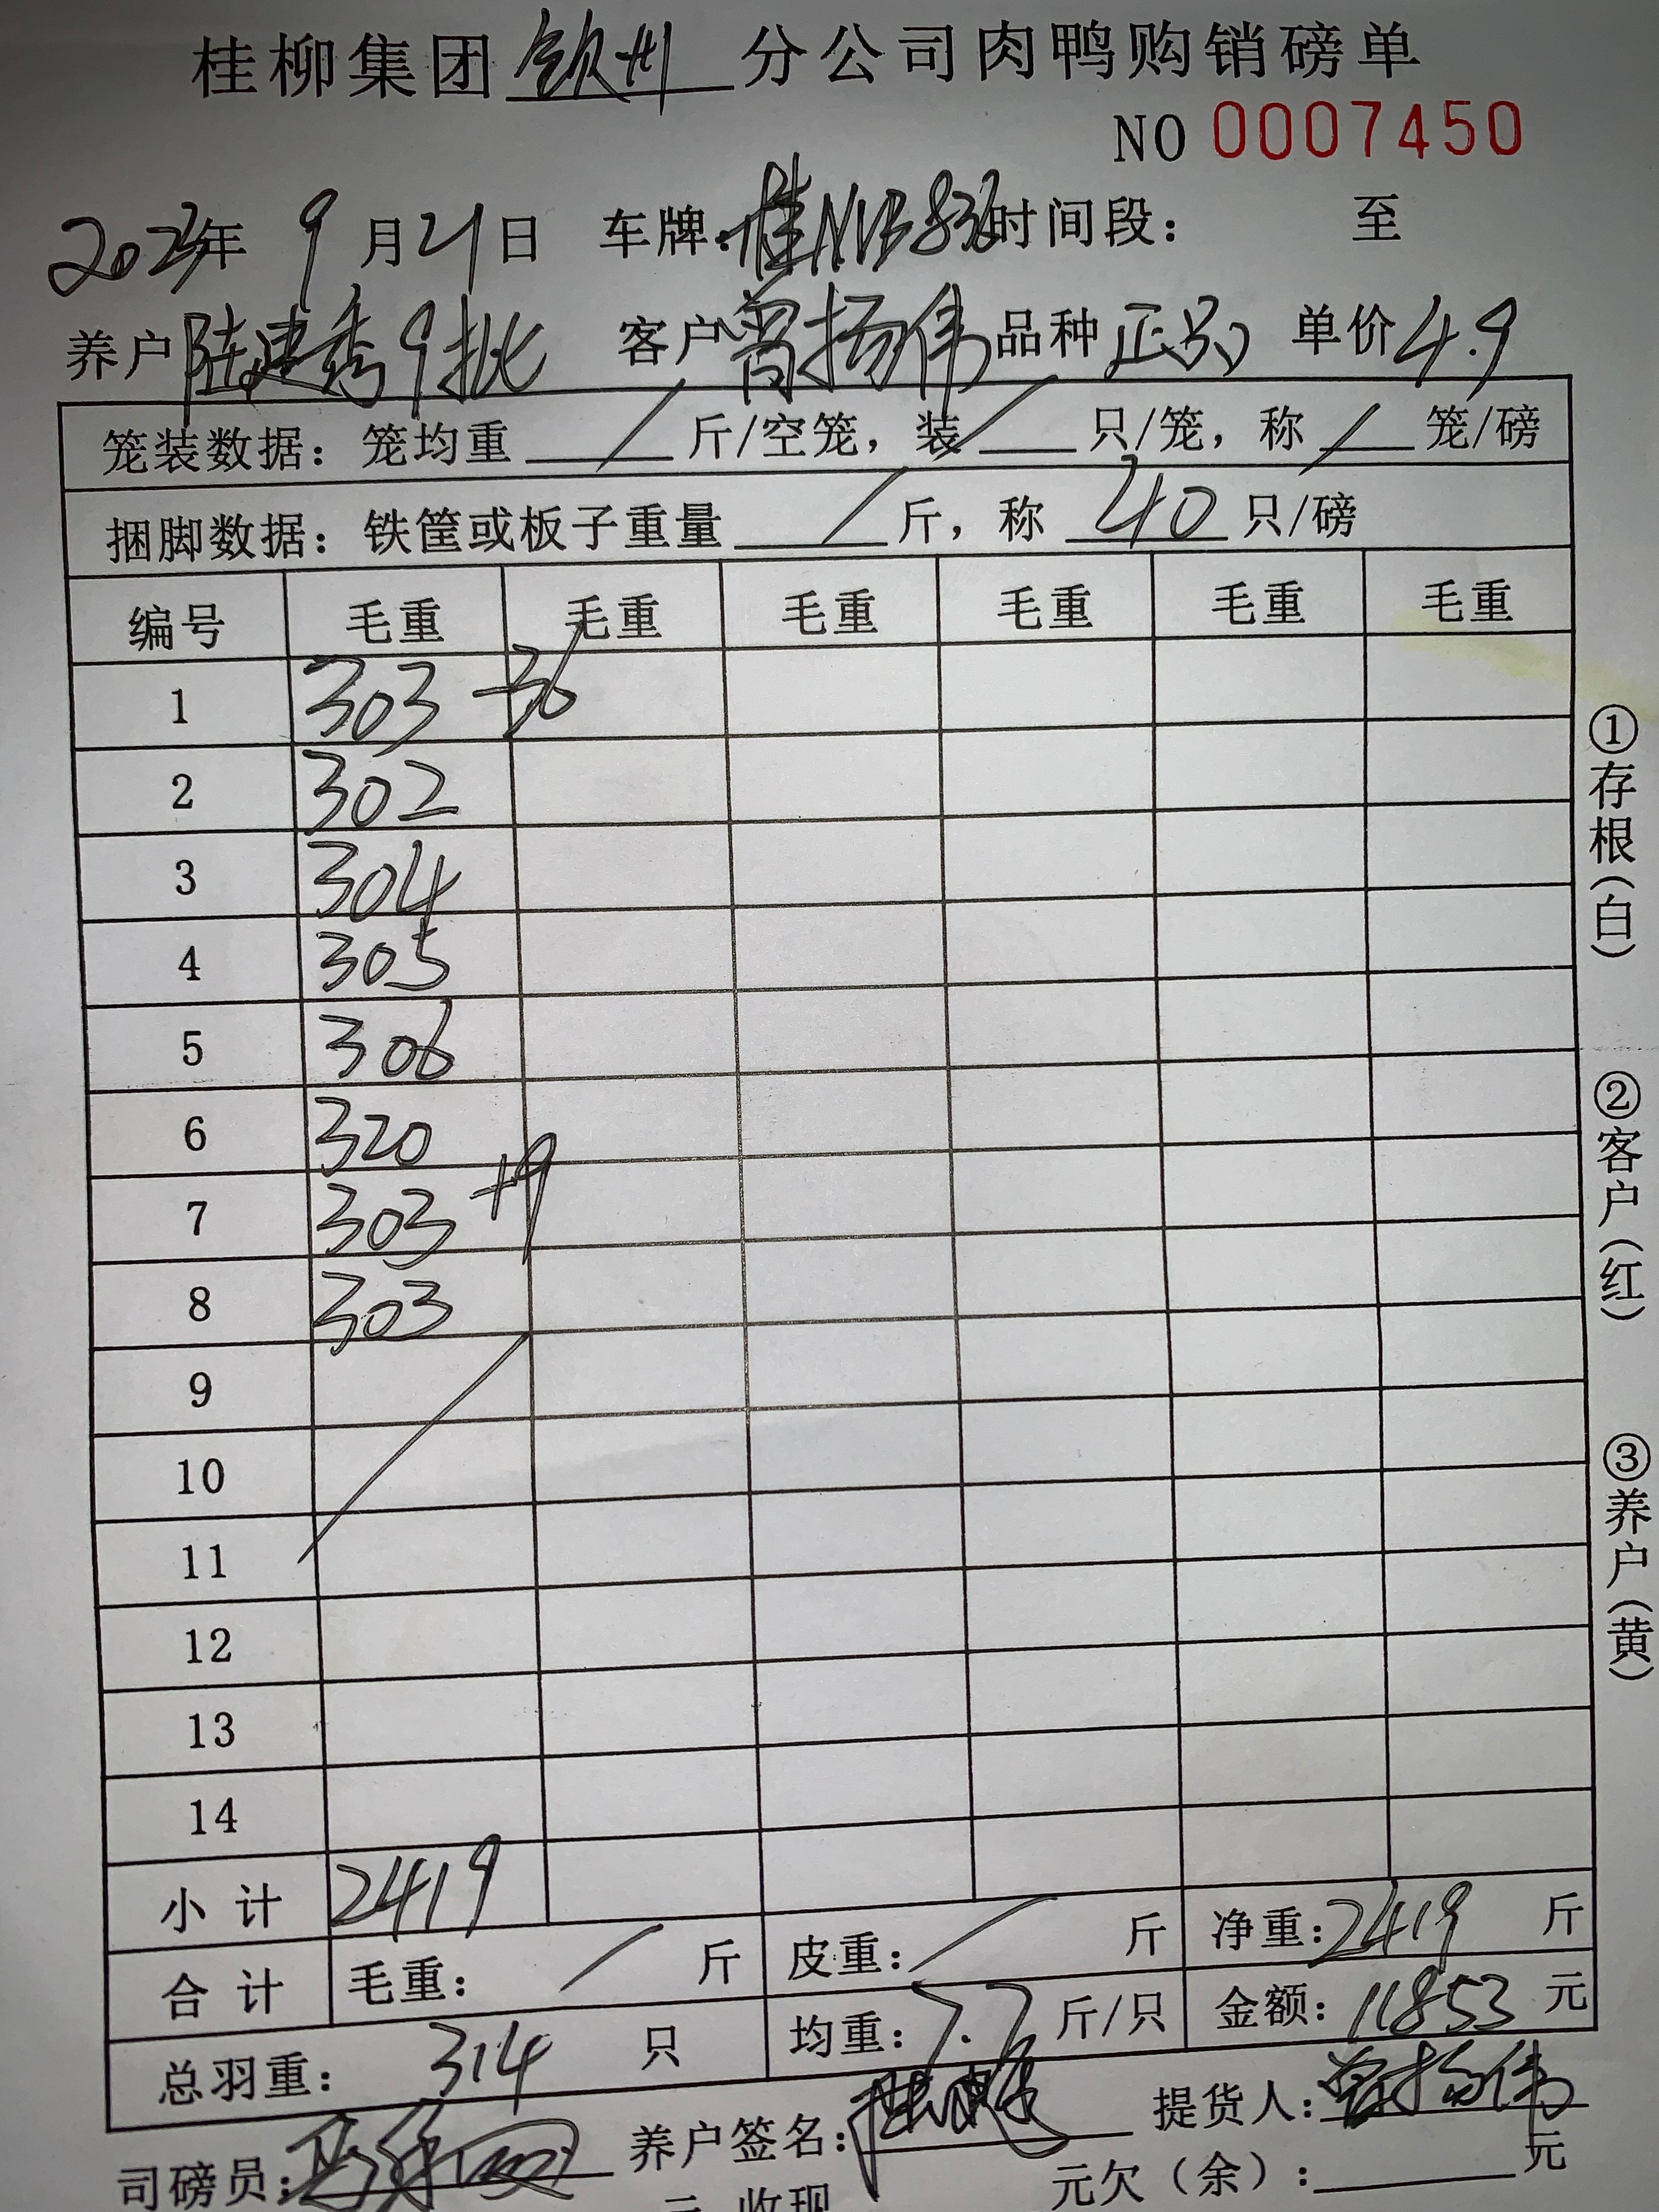 桂柳集团钦州分公司肉鸭购销磅单
NO 0007450
年 9月21日 车牌: 时间段: 至
养户陆建秀9批 客户曾扬伟品种正品 单价4.9
笼装数据:笼均重 / 斤/空笼,装 / 只/笼,称 / 笼/磅
捆脚数据:铁筐或板子重量 / 斤,称 40 只/磅
编号 毛重 毛重 毛重 毛重 毛重 毛重
1 303 -36
2 302
3 304
4 305
5 306
6 320
7 303 +9
8 303
9
10
11
12
13
14
小计 2419
合计 毛重: / 斤 皮重: / 斤 净重:2419 斤
总羽重: 314 只 均重:7.7斤/只 金额:11853 元
司磅员: 养户签名: 提货人:曾扬伟
元 收现 元欠(余): 元
①存根(白)
②客户(红)
③养户(黄)